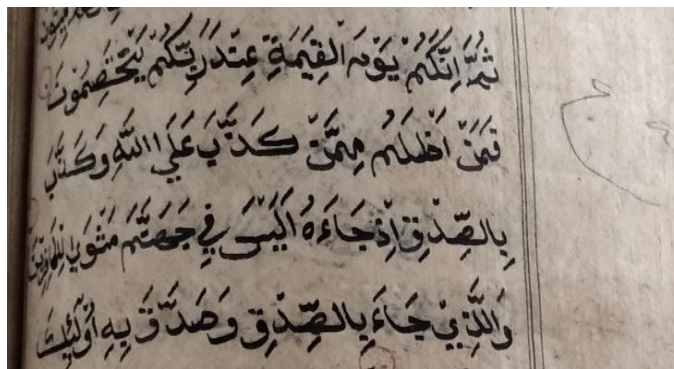 ثُمَّ اِنَّكُمْ يَوْمَ الْقِيٰمَةِ عِنْدَ رَبِّكُمْ تَخْتَصِمُوْنَ
فَمَنْ اَظْلَمُ مِمَّنْ كَذَبَ عَلَى اللّٰهِ وَكَذَّبَ
بِالصِّدْقِ اِذْ جَاءَهُ اَلَيْسَ فِيْ جَهَنَّمَ مَثْوًى لِلْكَافِرِيْنَ
وَالَّذِيْ جَاءَ بِالصِّدْقِ وَصَدَّقَ بِهٖ اُولٰئِكَ